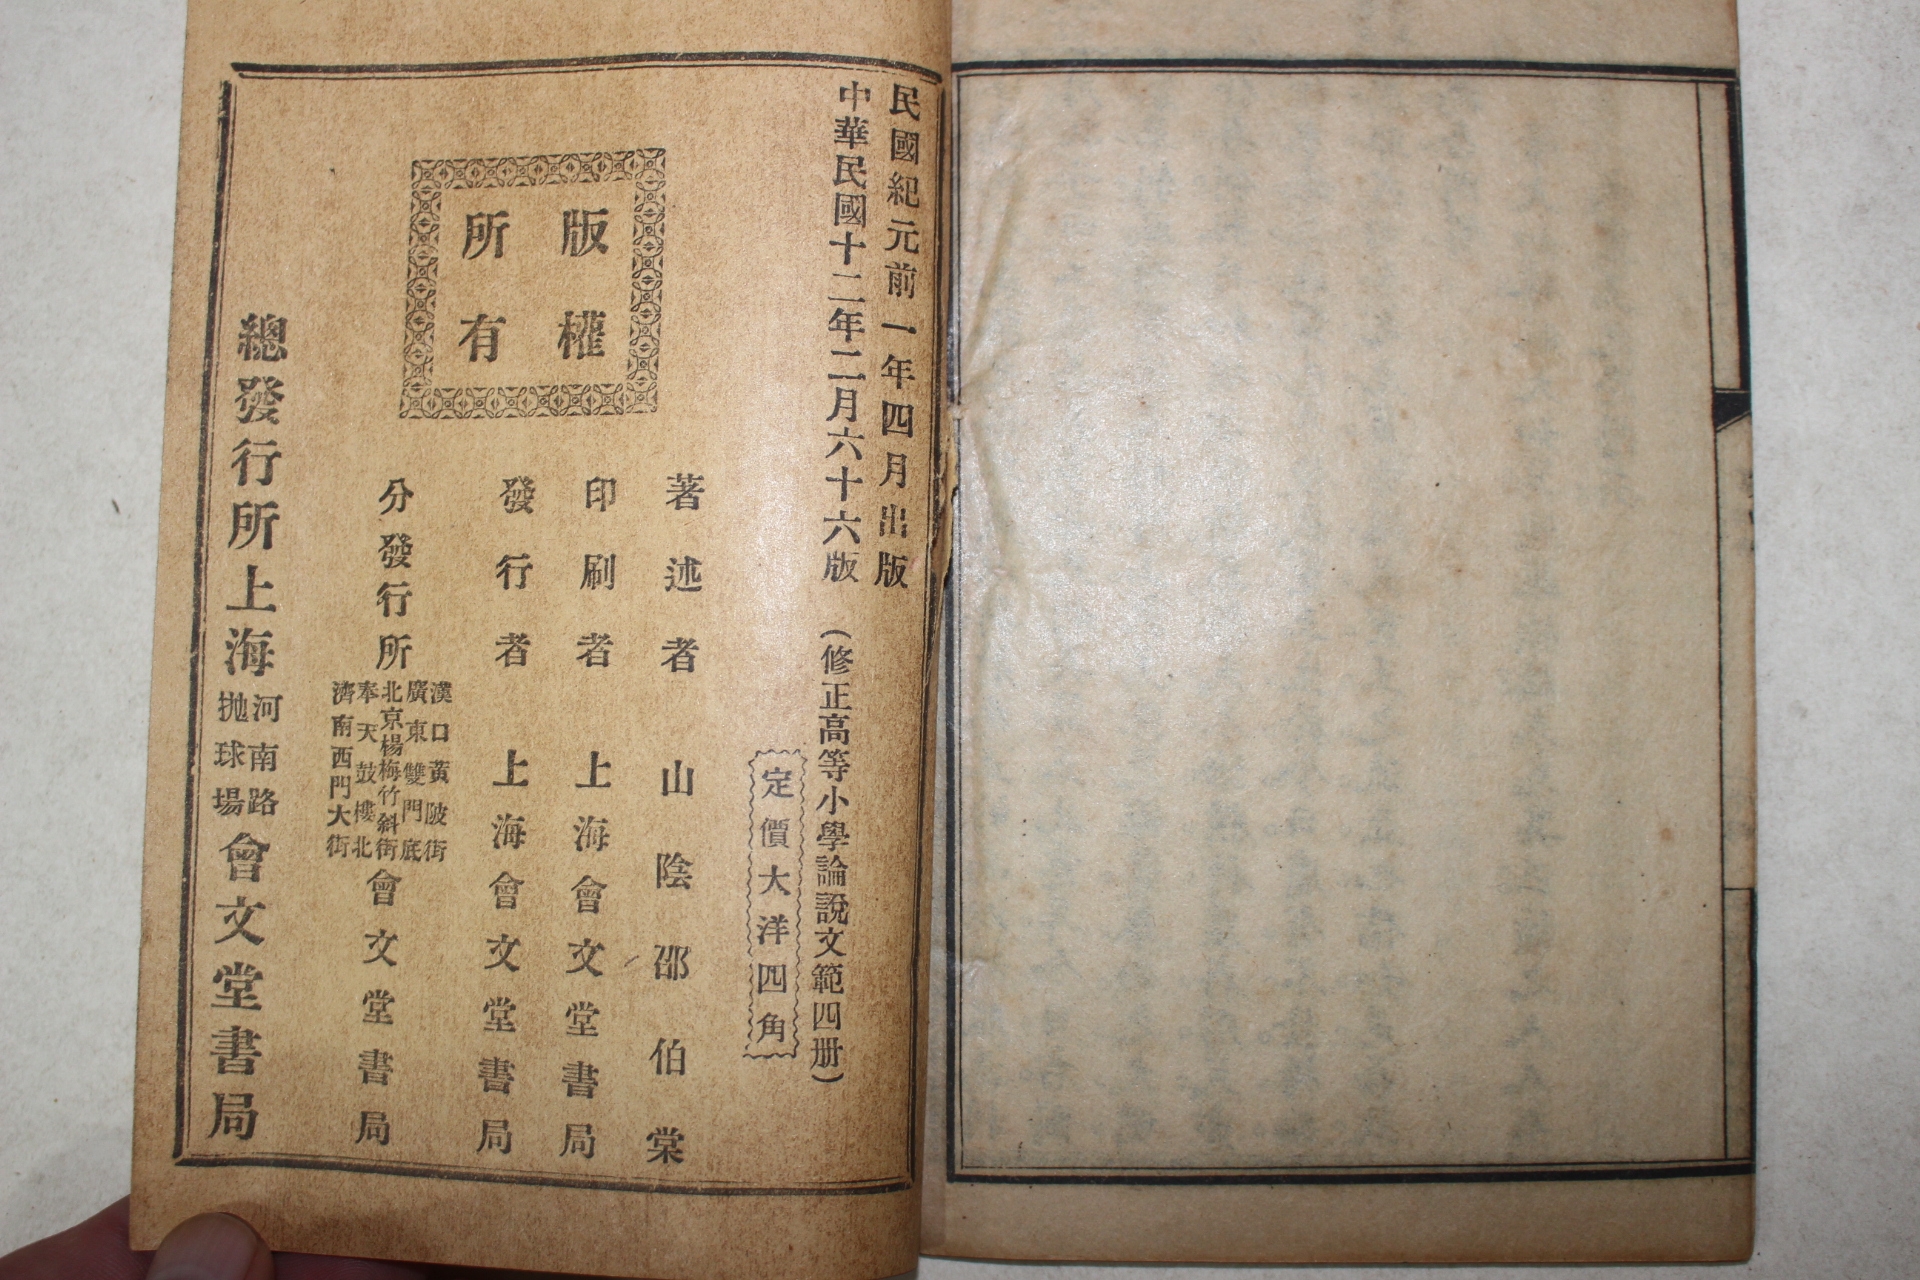 民國紀元前一年四月出版
中華民國十二年二月六十六版
(修正高等小學論說文範四册)
定價大洋四角
版權
所有
著述者 山陰邵伯棠
印刷者 上海會文堂書局
發行者 上海會文堂書局
分發行所
漢口黃陂街
廣東雙門底
北京楊梅竹斜街
奉天鼓樓北
濟南西門大街
會文堂書局
總發行所上海
河南路
拋球場
會文堂書局